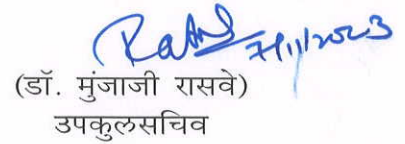 7/11/2023
(डॉ. मुंजाजी रासवे)
उपकुलसचिव